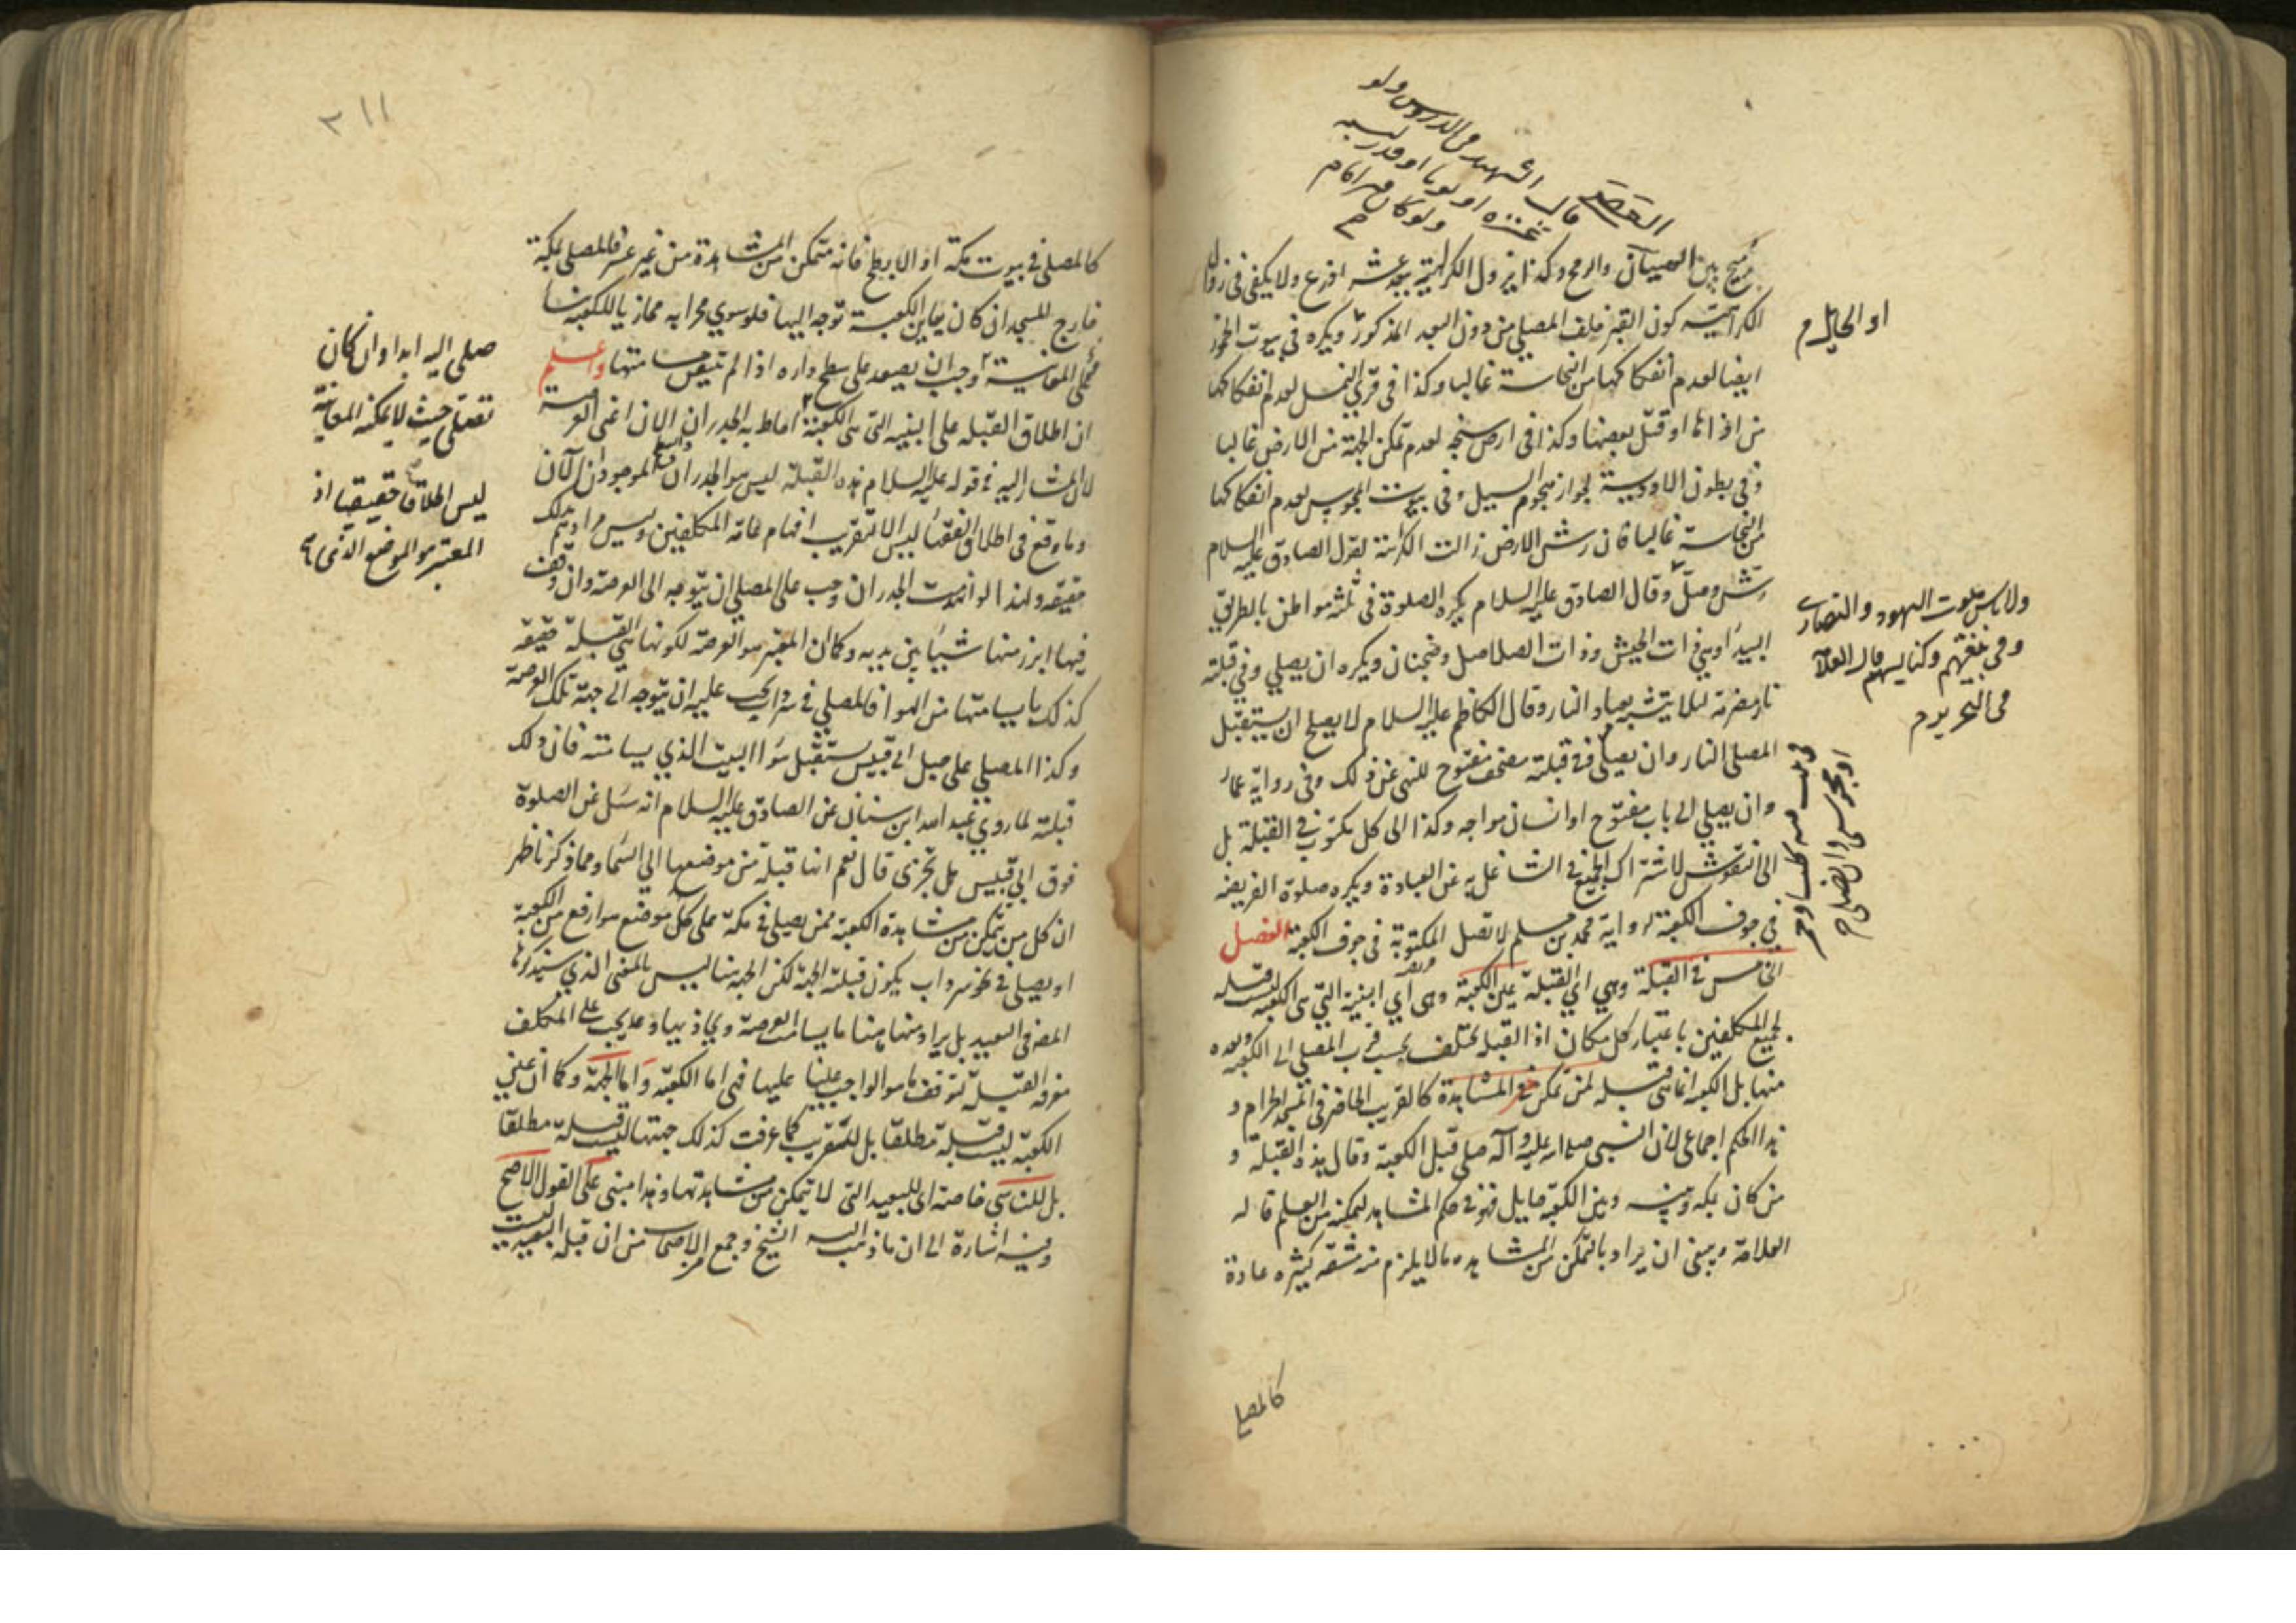 العصر
قال الشهيد في الدروس ولو
عنزة او ثوبا او قدر لبنة
ولو كان قبر امام
م
بين الصبيان والرمح وكذا تزول الكراهية ببعد عشرة اذرع ولا يكفي في زوال
الكراهية كون القبر خلف المصلي من دون البعد المذكور ويكره في بيوت الخمور
ايضا لعدم انفكاكها من النجاسة غالبا وكذا في قرى النمل لعدم انفكاكها
من اذائها او قتل بعضها وكذا في ارض سبخة لعدم تمكن الجبهة من الارض غالبا
وفي بطون الاودية لجواز هجوم السيل وفي بيوت المجوس لعدم انفكاكها
من النجاسة غالبا فان رش الارض زالت الكراهة لقول الصادق عليه السلام
رش وصل وقال الصادق عليه السلام يكره الصلوة في ثلثة مواطن بالطريق
البيداء وهي ذات الجيش وذات الصلاصل وضجنان ويكره ان يصلي وفي قبلته
نار مضرمة لئلا يتشبه بعباد النار وقال الكاظم عليه السلام لا يصلح ان يستقبل
المصلي النار وان يصلي وفي قبلته مصحف مفتوح للنهي عن ذلك وفي رواية عمار
وان يصلي الى باب مفتوح او انسان مواجه وكذا الى كل مكتوب في القبلة بل
الى النقوش لاشتراك الجميع في الشاغلية عن العبادة ويكره صلوة الفريضة
في جوف الكعبة لرواية محمد بن مسلم لا تصل المكتوبة في جوف الكعبة الفصل
الخامس في القبلة وهي اي القبلة عين الكعبة وهي اي البنية التي هي الكعبة ليست قبلة
لجميع المكلفين باعتبار كل مكان اذ القبلة تختلف بحسب قرب المصلي الى الكعبة وبعده
منها بل الكعبة انما هي قبلة لمن تمكن من المشاهدة كالقريب الحاضر في المسجد الحرام و
هذا الحكم اجماعي لان النبي صلى الله عليه وآله صلى قبل الكعبة وقال هذه القبلة و
من كان بمكة وبينه وبين الكعبة حايل فهو في حكم المشاهد لتمكنه من العلم قاله
العلامة وينبغي ان يراد بالتمكن من المشاهدة ما لا يلزم منه مشقة كثيرة عادة
او الحايل م
ولا باس ببيوت اليهود والنصارى
وفي بيعهم وكنايسهم قال العلامة
في التحرير م
او مجوسي وان صلى م
كالمصلي
٢١١
كالمصلي في بيوت مكة او الابطح فانه متمكن من المشاهدة من غير عسر فالمصلي بمكة
خارج المسجد ان كان يعاين الكعبة توجه اليها فلو سوي محرابه محاذيا للكعبة بناء
على المعاينة وجب ان يصعد على سطح داره اذا لم يتيقن مسامتتها واعلم
ان اطلاق القبلة على البنية التي هي الكعبة احاط به الجدران الان اعني العرصة
لان المشار اليه في قوله عليه السلام هذه القبلة ليس هو الجدران الموجود الآن
وما وقع في اطلاق الفقهاء ليس الا لتقريب افهام عامة المكلفين وليس مرادهم ذلك
حقيقة ولهذا لو انهدمت الجدران وجب على المصلي ان يتوجه الى العرصة وان وقف
فيها ابرز منها شيئا بين يديه وكان المعتبر هو العرصة لكونها هي القبلة حقيقة
كذلك ما يسامتها من الهواء فالمصلي في سرداب يجب عليه ان يتوجه الى جهة تلك العرصة
وكذا المصلي على جبل ابي قبيس يستقبل هواء البيت الذي يسامته فان ذلك
قبلته لما روي عبد الله ابن سنان عن الصادق عليه السلام انه سئل عن الصلوة
فوق ابي قبيس هل تجزى قال نعم انها قبلة من موضعها الى السماء ومما ذكر ظهر
ان كل من يتمكن من مشاهدة الكعبة ممن يصلي في مكة على كل موضع هو ارفع من الكعبة
او يصلي في نحو سرداب يكون قبلته الجهة لكن الجهة هنا ليس بالمعنى الذي سيذكرها
المصـ في البعيد بل يراد منها هنا ما يسامت العرصة ويحاذيها وقد يجب على المكلف
معرفة القبلة لتوقف ما هو الواجب علينا عليها فهي اما الكعبة واما الجهة وكما ان عين
الكعبة ليست قبلة مطلقا بل للقريب كما عرفت كذلك جهتها ليست قبلة مطلقا
بل للنائي خاصة اي للبعيد التي لا يتمكن من مشاهدتها وهذا مبني على القول الاصح
وفيه اشارة الى ان ما ذهب اليه الشيخ وجمع من الاصحاب من ان قبلة البعيد ليست
صلى اليه ابدا وان كان
تصلي حيث لا يمكنه المعاينة
ليس اطلاقا حقيقيا اذ
المعتبر هو الموضع الذي